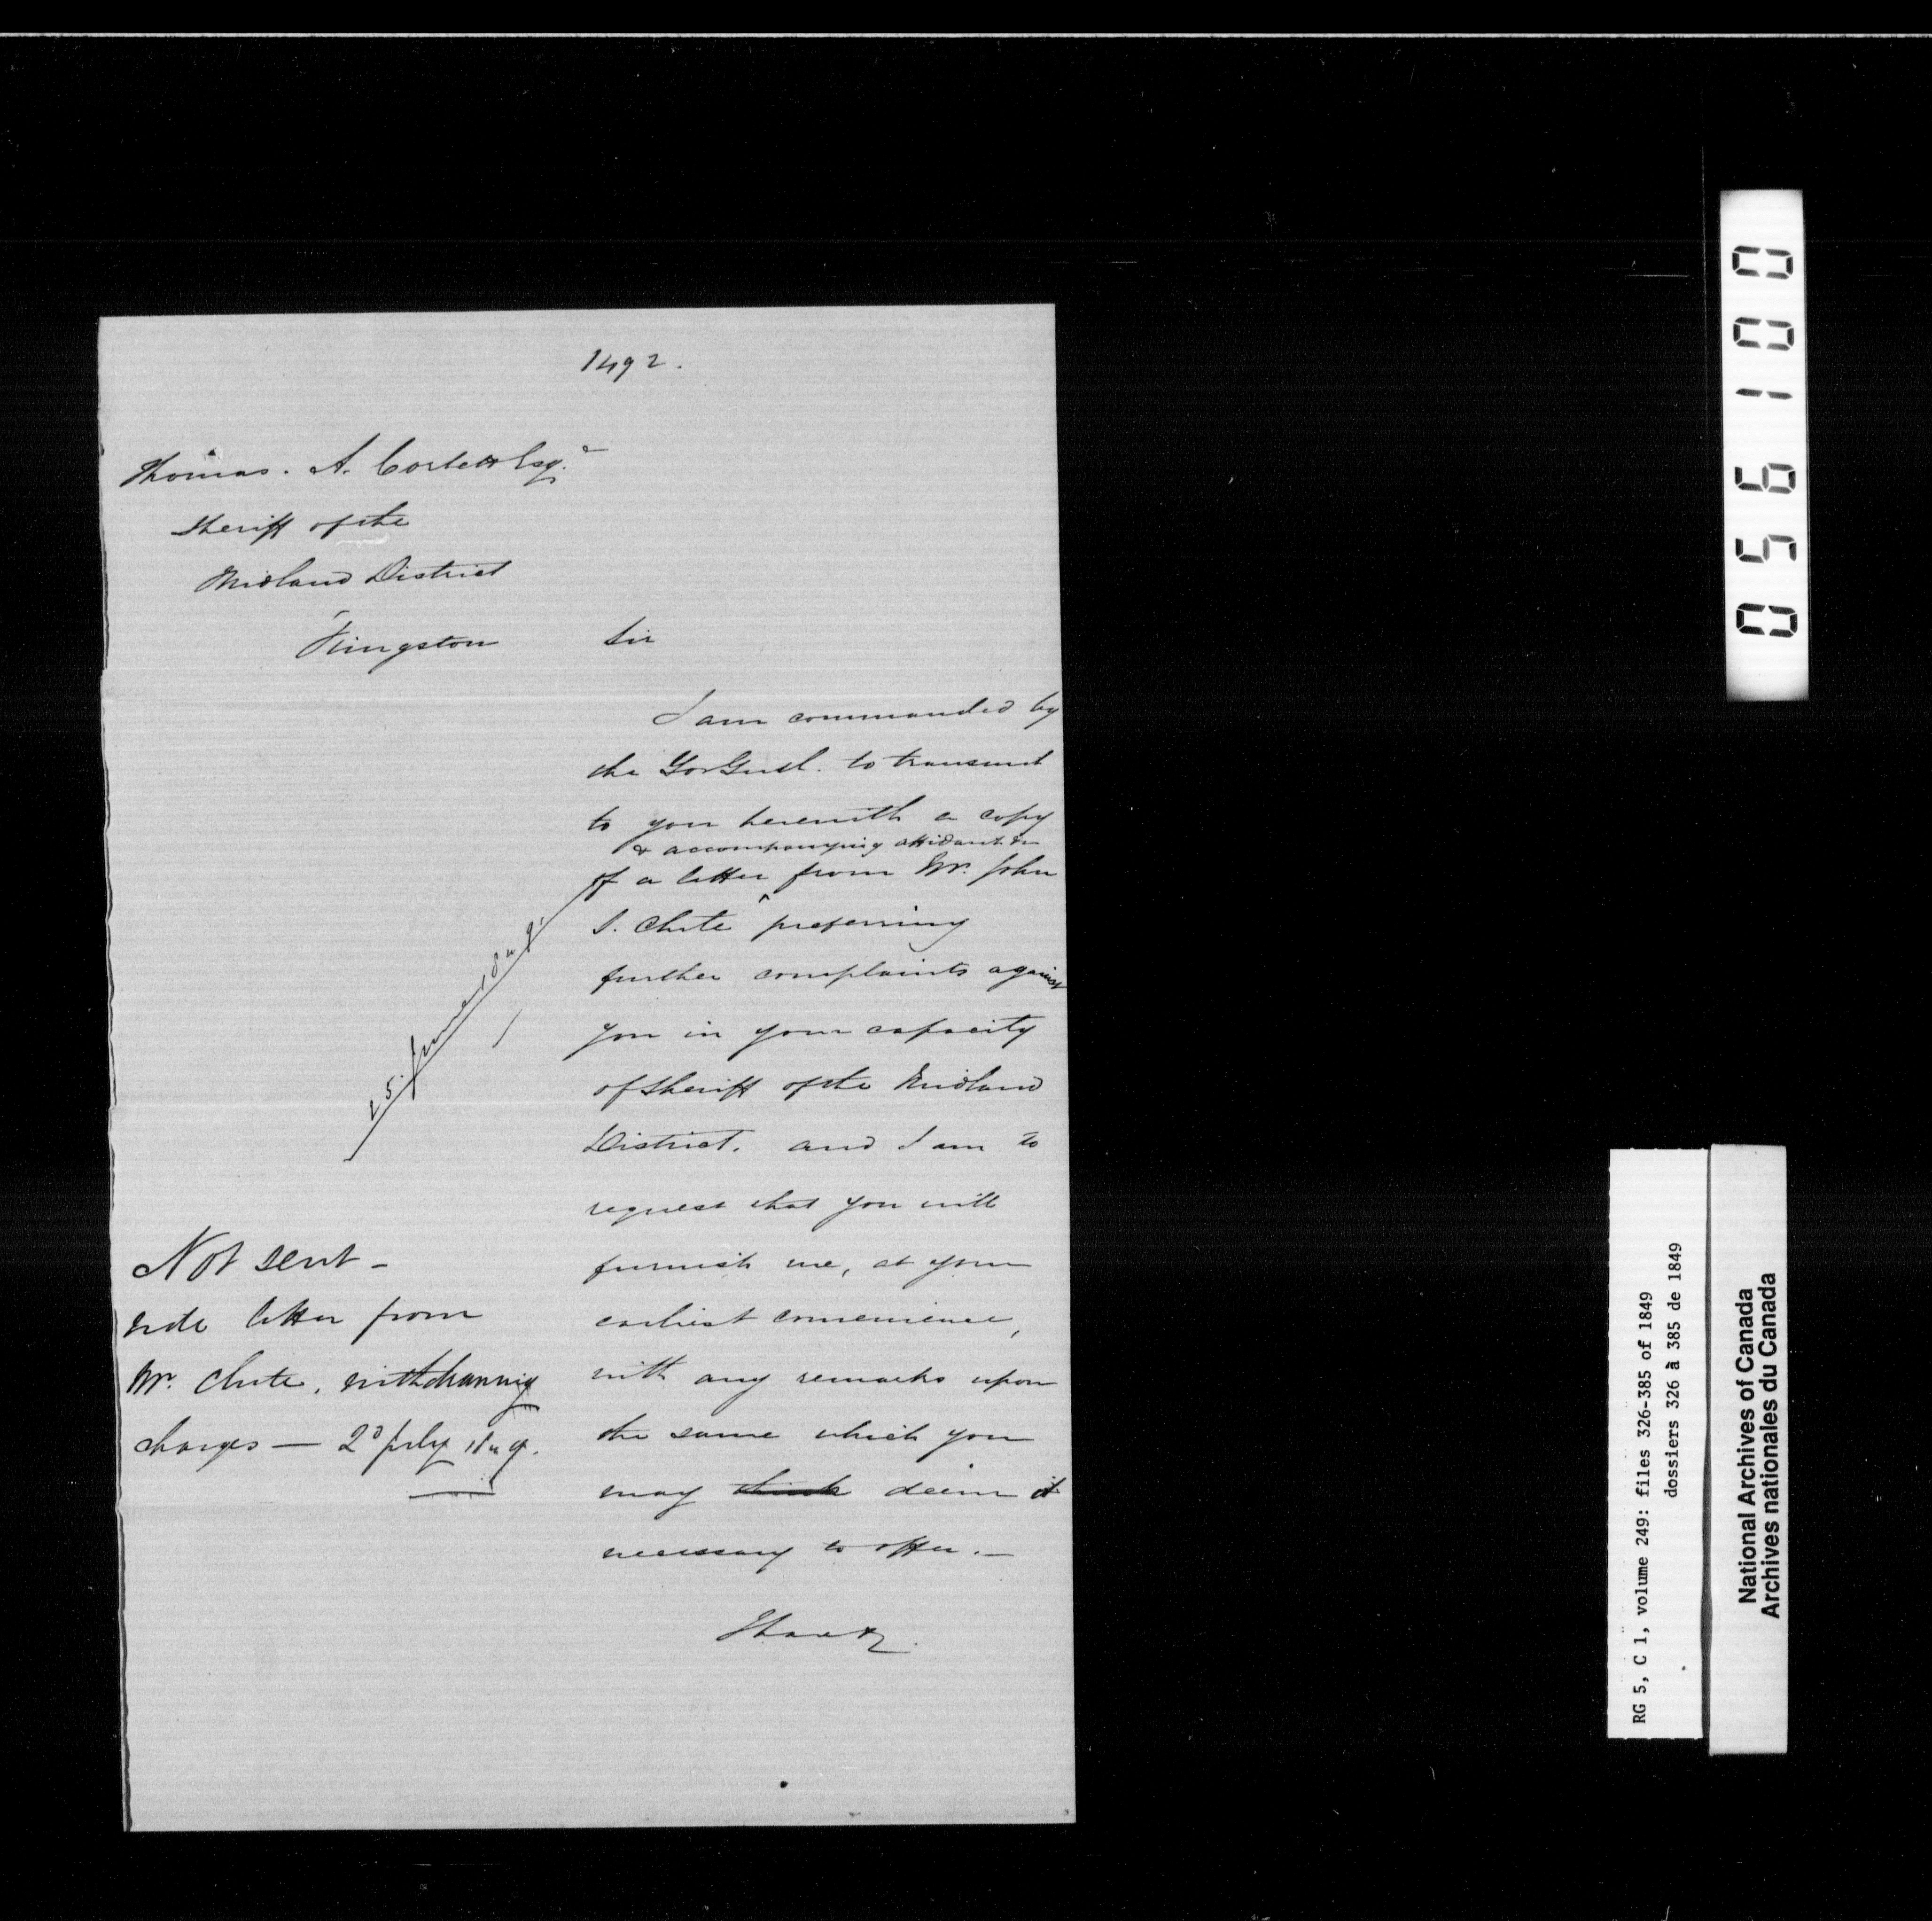 1492.
Thomas. A. Corbett Esqr
Sheriff of the
Midland District
Kingston
Sir
I am commanded by
the Gov Genl. to transmit
to you herewith a copy
& accompanying affidavit
of a letter from Mr. John
S. Chute preferring
further complaints against
you in your capacity
of Sheriff of the Midland
District. and I am to
request that you will
furnish me, at your
earliest convenience,
with any remarks upon
the same which you
may think deem it
necessary to offer. —
I have &
25 June 1849.
Not sent -
vide letter from
Mr. Chute, withdrawing
charges — 2d July 1849.
056100
RG 5, C 1, volume 249: files 326-385 of 1849
dossiers 326 à 385 de 1849
National Archives of Canada
Archives nationales du Canada